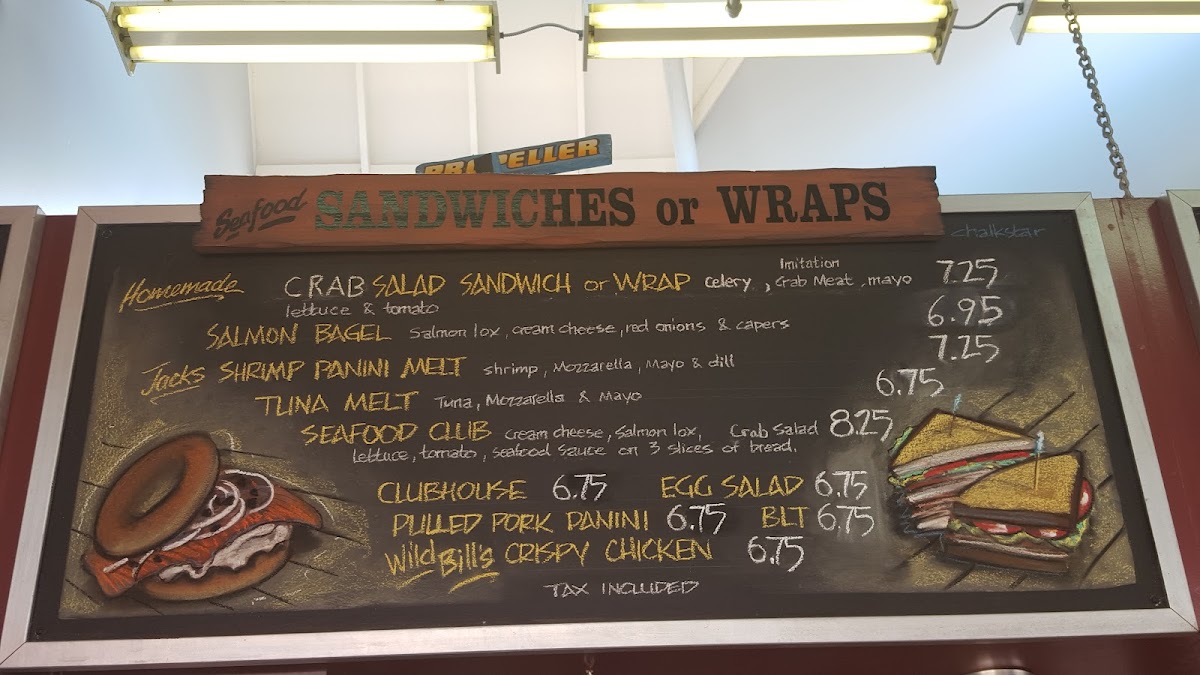 PROPELLER
Seafood SANDWICHES or WRAPS
chalkstar
Imitation
Homemade CRAB SALAD SANDWICH or WRAP celery, Crab Meat, mayo 7.25
lettuce & tomato
SALMON BAGEL Salmon lox, cream cheese, red onions & capers 6.95
Jacks SHRIMP PANINI MELT shrimp, Mozzarella, Mayo & dill 7.25
TUNA MELT Tuna, Mozzarella & Mayo 6.75
SEAFOOD CLUB cream cheese, Salmon lox, Crab Salad 8.25
lettuce, tomato, seafood sauce on 3 slices of bread.
CLUBHOUSE 6.75 EGG SALAD 6.75
PULLED PORK PANINI 6.75 BLT 6.75
Wild Bill's CRISPY CHICKEN 6.75
TAX INCLUDED